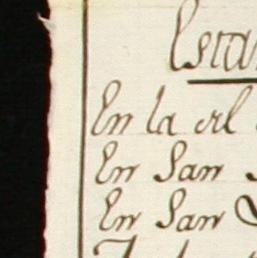 Estan
En la al
En San
En San